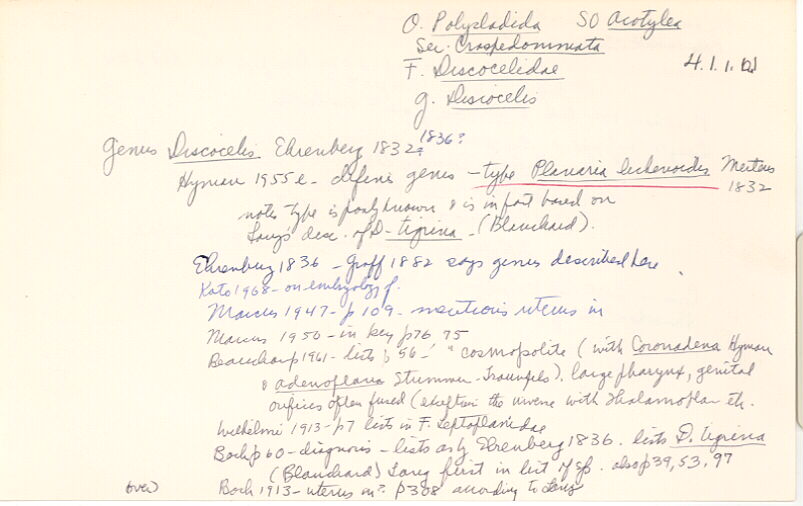 O. Polycladida SO Acotylea
Sec. Craspedommata
F. Discocelidae 4.1.1.
g. Discocelis
Genus Discocelis Ehrenberg 1832? 1836?
Hyman 1955e - defines genus - type Planaria lichenoides Mertens
1832
notes type is poorly known & is in part based on
Lang's desc. of D. tigrina (Blanchard).
Ehrenberg 1836 - Graff 1882 says genus described here.
Kato 1968 - on embryology of.
Marcus 1947 - p 109 - mentions uterus in
Marcus 1950 - in key p76, 75
Beauchamp 1961 - lists p 56 - "cosmopolite (with Coronadena Hyman
& adenoplana Stummer-Traunfels). large pharynx, genital
orifices often fused ( the with Thalamoplan etc.
Wilhelmi 1913 - p7 lists in F. Leptoplanidae
Bock p 60 - diagnosis - lists as by Ehrenberg 1836. lists D. tigrina
(Blanchard) Lang first in list of sp. also p39, 53, 97
(over) Bock 1913 - uterus in? p308 according to Lang